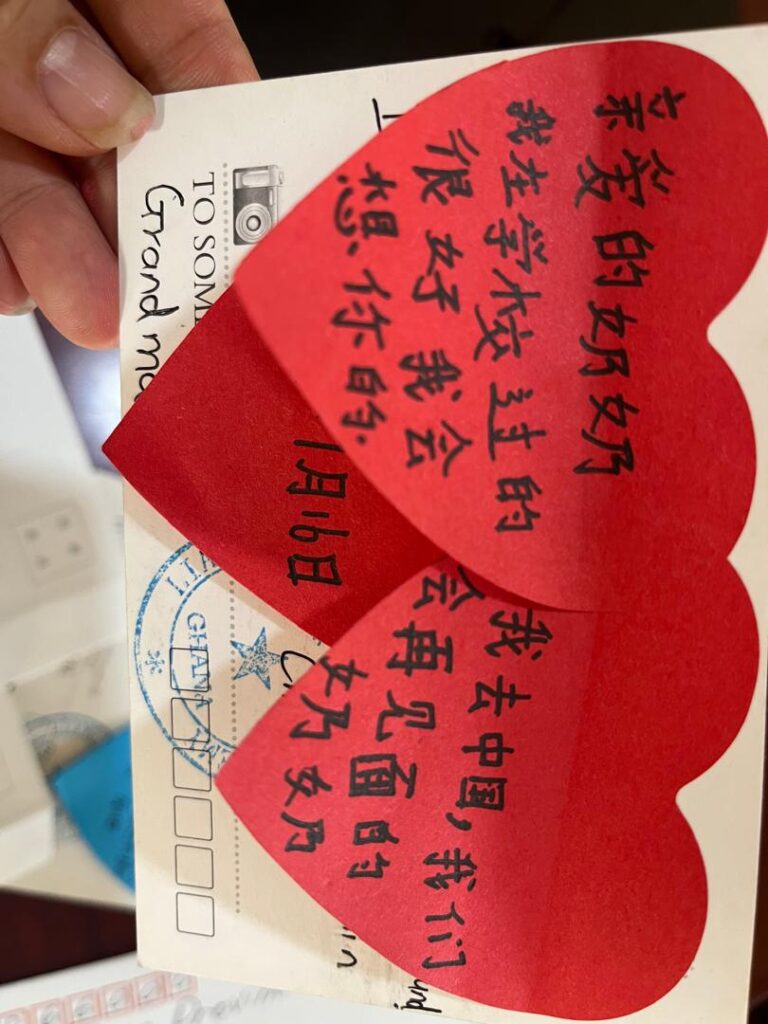 亲爱的奶奶
我在学校过的
很好我会
想你的.
1月16日
我去中国,我们
会再见面的
奶奶
TO SOM
Grand ma
GHANA